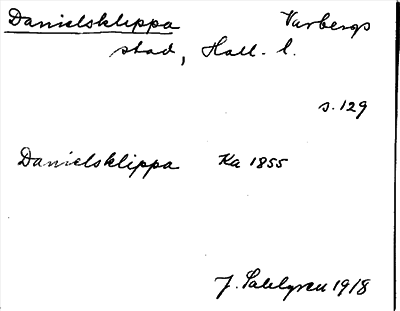 Danielsklippa Varbergs
stad, Hall. l.
s. 129
Danielsklippa Ka 1855
J. Sahlgren 1918